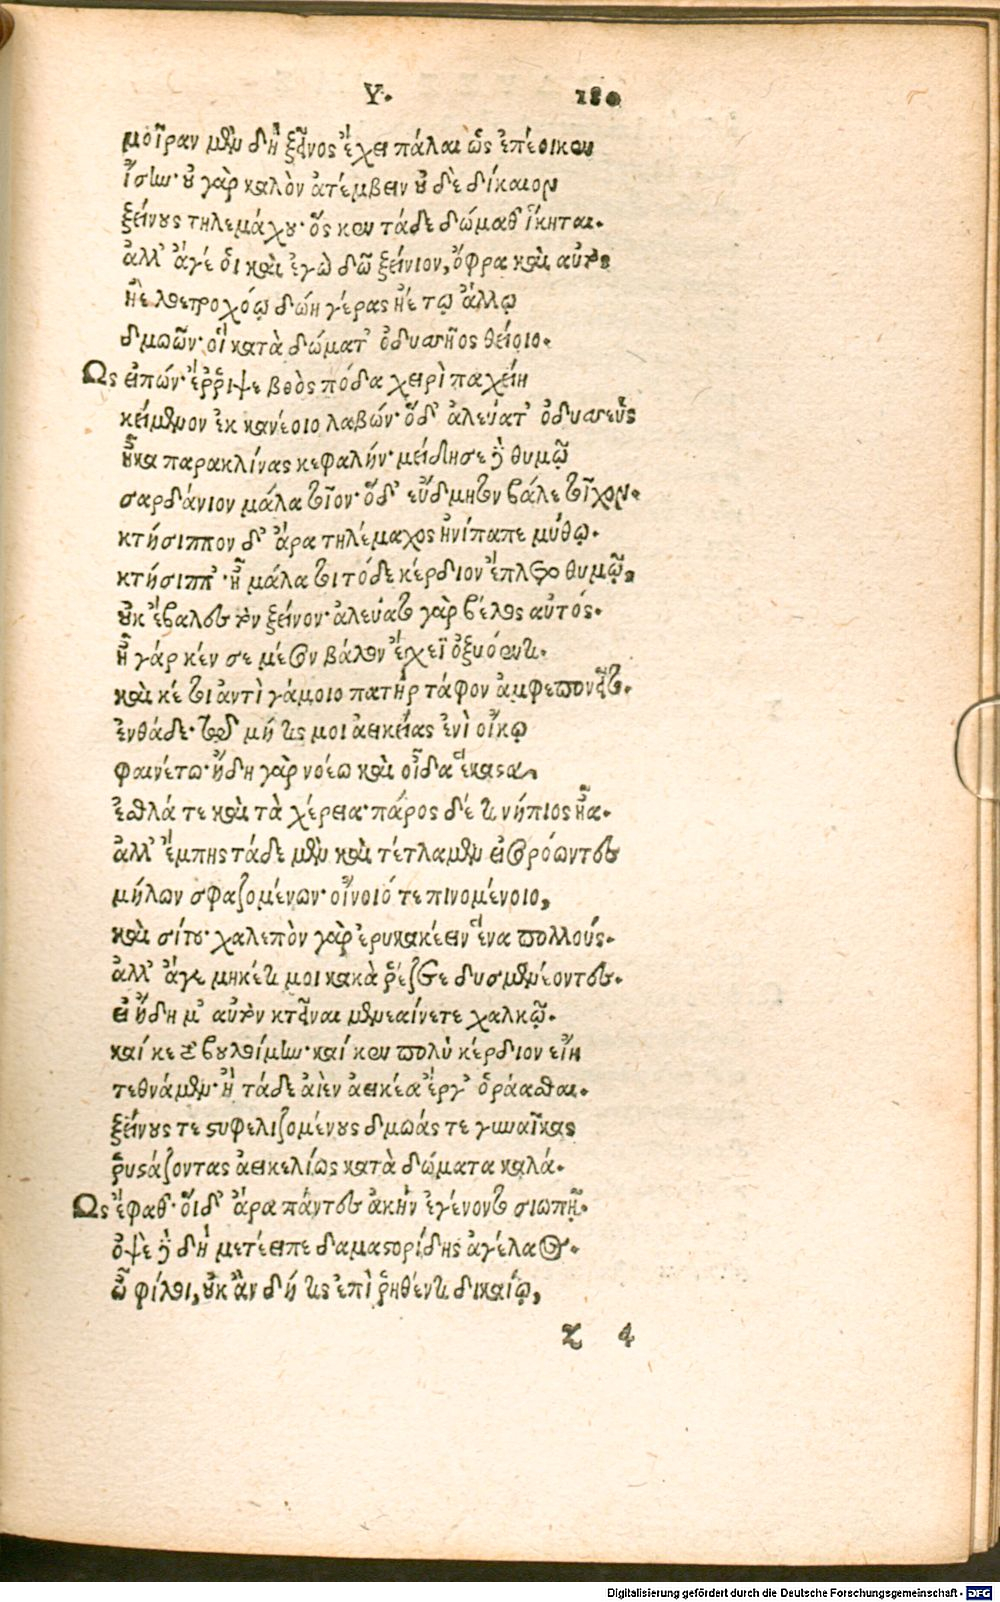 Υ. 180
μοῖραν μὲν δὴ ξεῖνος ἔχει πάλαι ὡς ἐπέοικεν
ἴσην· οὐ γὰρ καλὸν ἀτέμβειν οὐ δὲ δίκαιον
ξείνους τηλεμάχου· ὅς κεν τάδε δώμαθ' ἵκηται.
ἀλλ' ἄγέ οἱ καὶ ἐγὼ δῶ ξείνιον, ὄφρα καὶ αὐτὸς
ἠὲ λοετροχόῳ δώῃ γέρας ἠέ τῳ ἄλλῳ
δμώων· οἳ κατὰ δώματ' ὀδυσσῆος θείοιο.
Ως εἰπών· ἔῤῥιψε βοὸς πόδα χειρὶ παχείῃ
κείμενον ἐκ κανέοιο λαβών· ὅδ' ἀλεύατ' ὀδυσσεὺς
ἦκα παρακλίνας κεφαλήν· μείδησε δὲ θυμῷ
σαρδάνιον μάλα τοῖον· ὅδ' εὔδμητον βάλε τοῖχον.
κτήσιππον δ' ἄρα τηλέμαχος ἠνίπαπε μύθῳ.
κτήσιππ'· ἦ μάλα τοι τόδε κέρδιον ἔπλετο θυμῷ,
οὐκ ἔβαλες τὸν ξεῖνον· ἀλεύατο γὰρ βέλος αὐτός.
ἦ γάρ κέν σε μέσον βάλον ἔγχεϊ ὀξυόεντι.
καί κέ τοι ἀντὶ γάμοιο πατὴρ τάφον ἀμφεπονεῖτο.
ἐνθάδε· τῷ μή τις μοι ἀεικείας ἐνὶ οἴκῳ
φαινέτω· ἤδη γὰρ νοέω καὶ οἶδα ἕκαστα,
ἐσθλά τε καὶ τὰ χέρεια· πάρος δέ τι νήπιος ἦα.
ἀλλ' ἔμπης τάδε μὲν καὶ τέτλαμεν εἰσορόωντες
μήλων σφαζομένων· οἴνοιό τε πινομένοιο,
καὶ σίτου· χαλεπὸν γὰρ ἐρυκακέειν ἕνα πολλούς.
ἀλλ' ἄγε μηκέτι μοι κακὰ ῥέζετε δυσμενέοντες.
εἰ ἤδη μ' αὐτὸν κτεῖναι μενεαίνετε χαλκῷ.
καί κε τὸ βουλοίμην· καί κεν πολὺ κέρδιον εἴη
τεθνάμεν· ἢ τάδε αἰὲν ἀεικέα ἔργ' ὁράασθαι.
ξείνους τε στυφελιζομένους δμωάς τε γυναῖκας
ῥυστάζοντας ἀεικελίως κατὰ δώματα καλά.
Ως ἔφαθ'· οἵδ' ἄρα πάντες ἀκὴν ἐγένοντο σιωπῇ.
ὀψὲ δὲ δὴ μετέειπε δαμαστορίδης ἀγέλαος.
ὦ φίλοι, οὐκ ἂν δή τις ἐπὶ ῥηθέντι δικαίῳ,
z 4
Digitalisierung gefördert durch die Deutsche Forschungsgemeinschaft - DFG